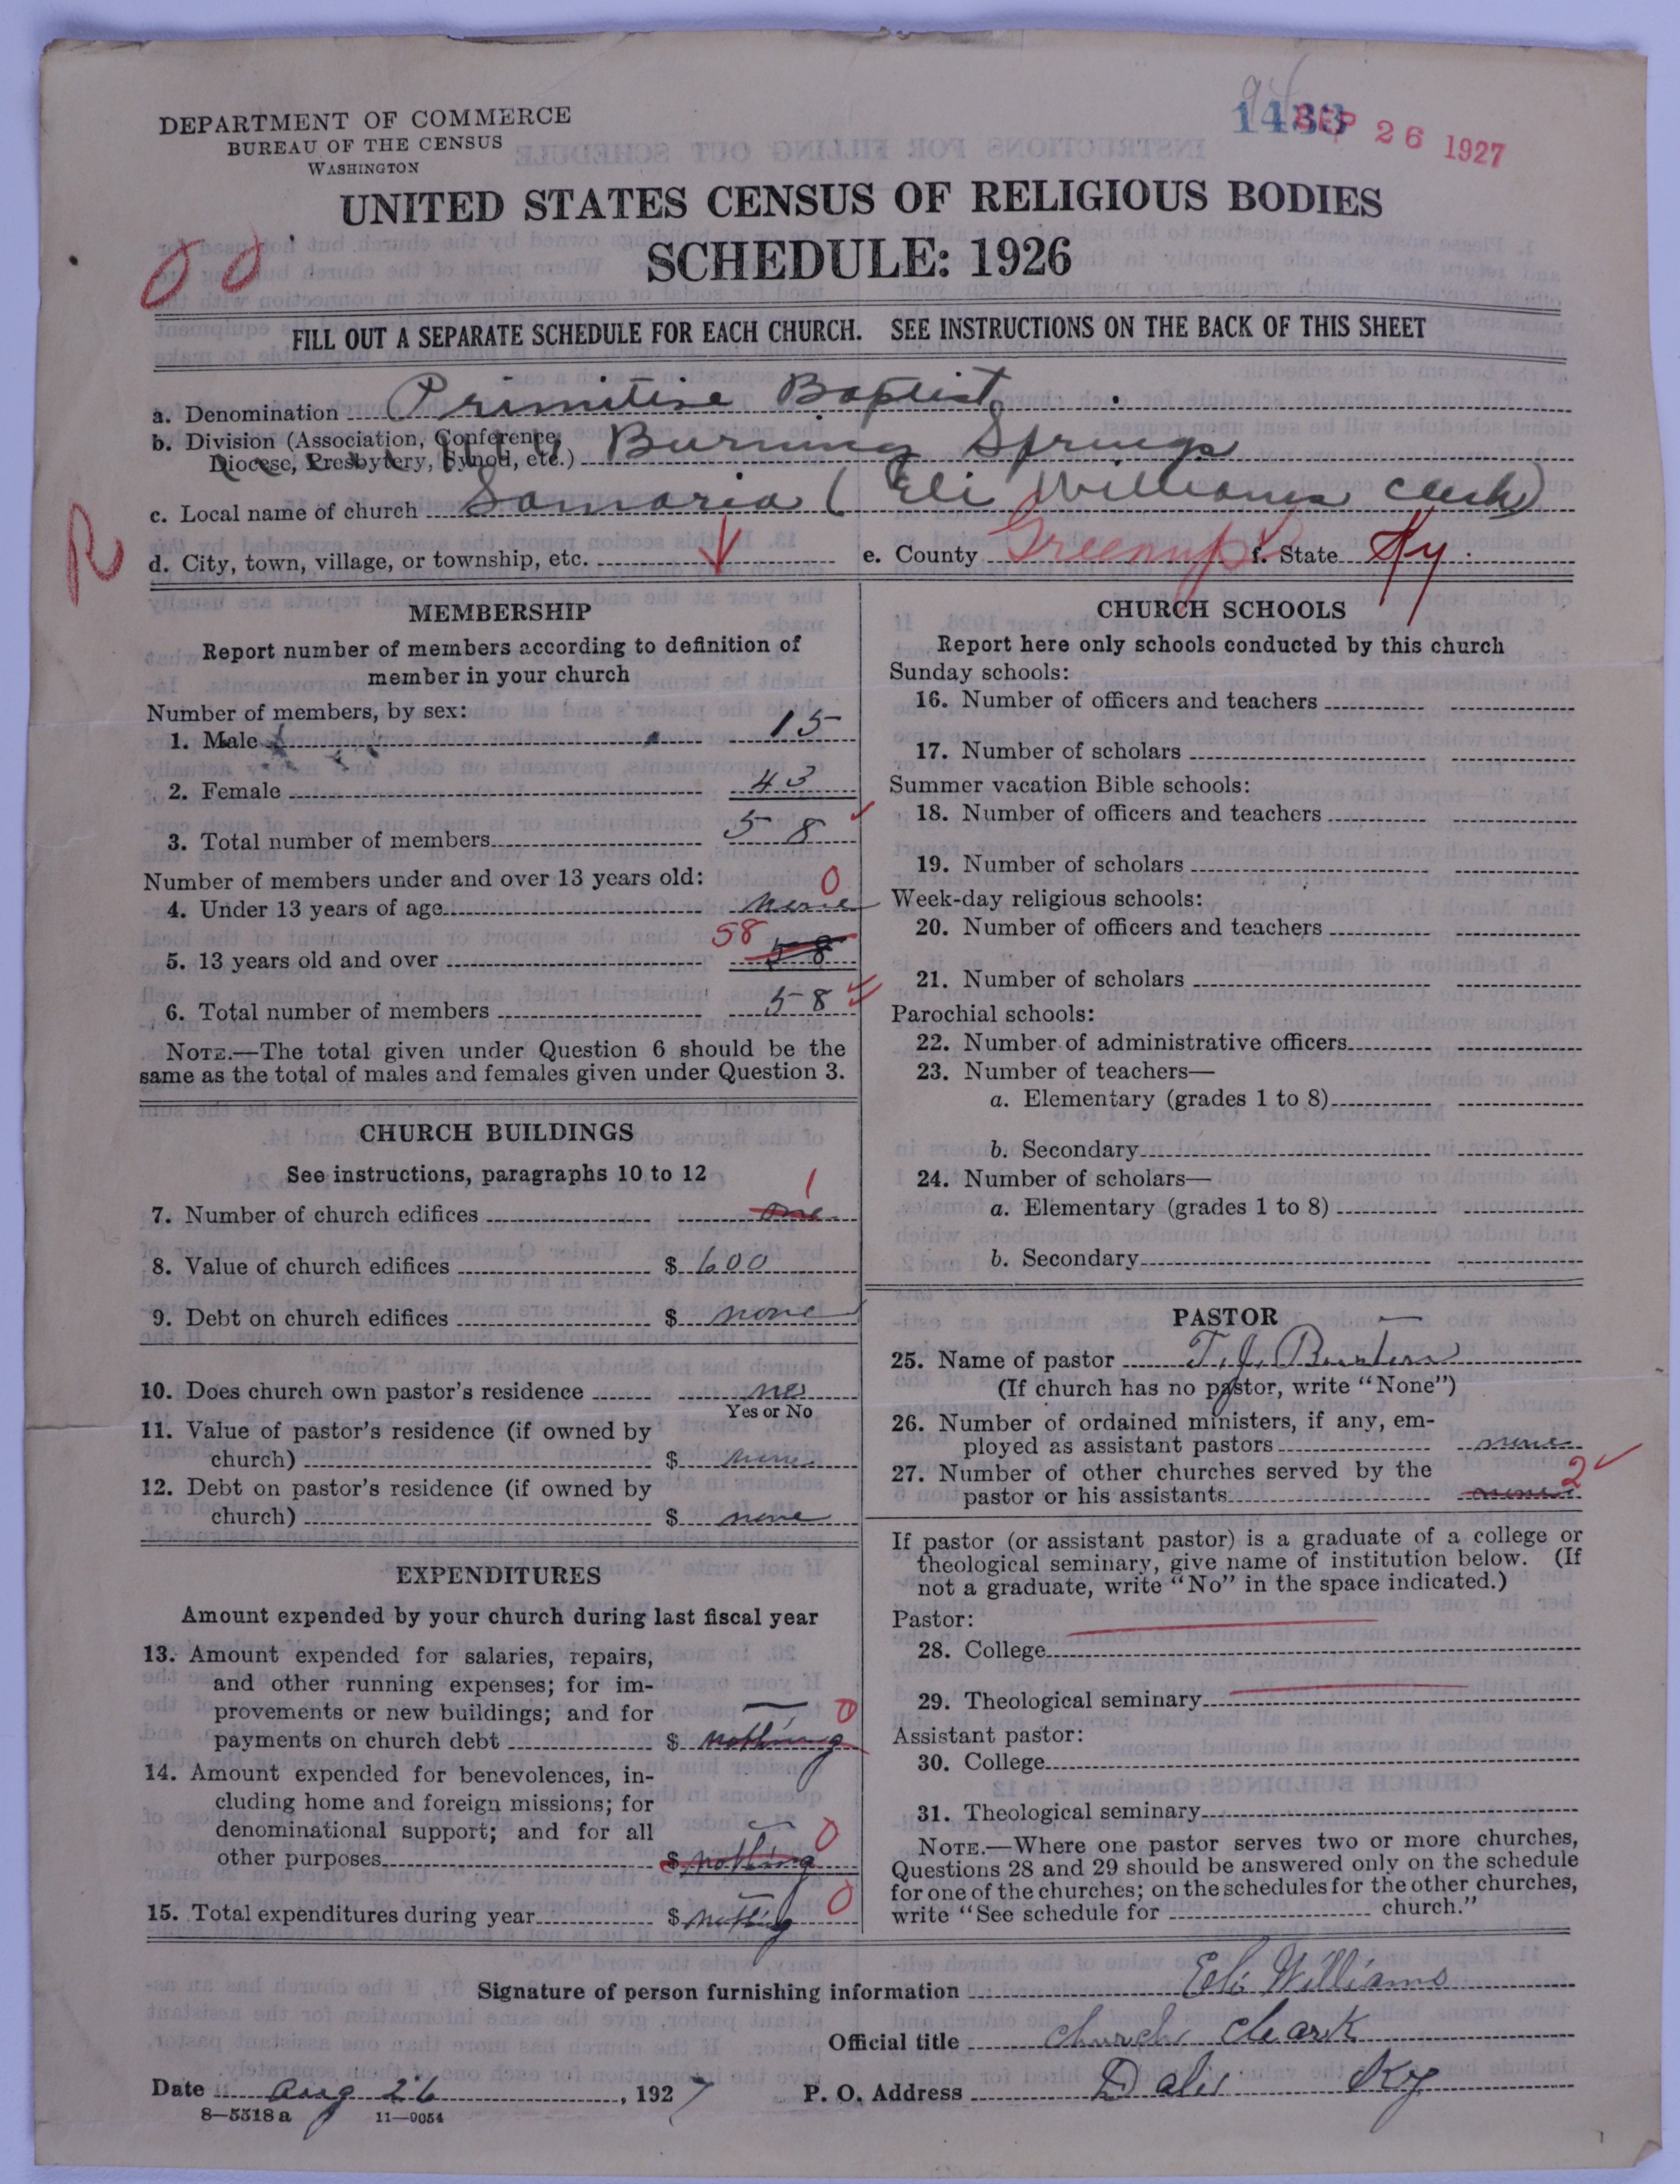 1433 SEP 26 1927
DEPARTMENT OF COMMERCE
BUREAU OF THE CENSUS
WASHINGTON
UNITED STATES CENSUS OF RELIGIOUS BODIES
SCHEDULE: 1926
FILL OUT A SEPARATE SCHEDULE FOR EACH CHURCH. SEE INSTRUCTIONS ON THE BACK OF THIS SHEET
a. Denomination Primitive Baptist
b. Division (Association, Conference,
Diocese, Presbytery, Synod, etc.) Burning Springs
c. Local name of church Samaria (Eli Williams clerk)
R
d. City, town, village, or township, etc.
e. County Greenup f. State Ky.
MEMBERSHIP
Report number of members according to definition of
member in your church
Number of members, by sex:
1. Male 15
2. Female 43
3. Total number of members 58
Number of members under and over 13 years old:
4. Under 13 years of age none 0
5. 13 years old and over 58 58
6. Total number of members 58
NOTE.—The total given under Question 6 should be the
same as the total of males and females given under Question 3.
CHURCH BUILDINGS
See instructions, paragraphs 10 to 12
7. Number of church edifices one 1
8. Value of church edifices $ 600
9. Debt on church edifices $ none
10. Does church own pastor's residence no
Yes or No
11. Value of pastor's residence (if owned by
church) $ none
12. Debt on pastor's residence (if owned by
church) $ none
EXPENDITURES
Amount expended by your church during last fiscal year
13. Amount expended for salaries, repairs,
and other running expenses; for im-
provements or new buildings; and for
payments on church debt $ nothing 0
14. Amount expended for benevolences, in-
cluding home and foreign missions; for
denominational support; and for all
other purposes $ nothing 0
15. Total expenditures during year $ nothing 0
CHURCH SCHOOLS
Report here only schools conducted by this church
Sunday schools:
16. Number of officers and teachers
17. Number of scholars
Summer vacation Bible schools:
18. Number of officers and teachers
19. Number of scholars
Week-day religious schools:
20. Number of officers and teachers
21. Number of scholars
Parochial schools:
22. Number of administrative officers
23. Number of teachers—
a. Elementary (grades 1 to 8)
b. Secondary
24. Number of scholars—
a. Elementary (grades 1 to 8)
b. Secondary
PASTOR
25. Name of pastor T. J.
(If church has no pastor, write "None")
26. Number of ordained ministers, if any, em-
ployed as assistant pastors none
27. Number of other churches served by the
pastor or his assistants none 2
If pastor (or assistant pastor) is a graduate of a college or
theological seminary, give name of institution below. (If
not a graduate, write "No" in the space indicated.)
Pastor:
28. College
29. Theological seminary
Assistant pastor:
30. College
31. Theological seminary
NOTE.—Where one pastor serves two or more churches,
Questions 28 and 29 should be answered only on the schedule
for one of the churches; on the schedules for the other churches,
write "See schedule for church."
Signature of person furnishing information Eli Williams
Official title church cleark
Date Aug 26, 1927 P. O. Address Ky
8—5518a 11—9054